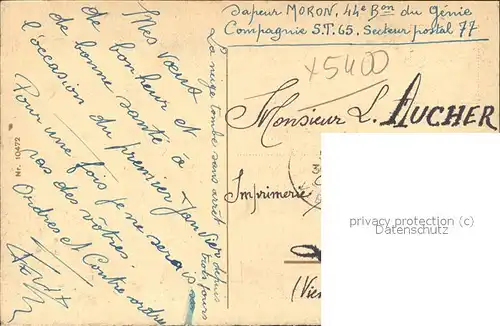 Sapeur MORON, 44e Bon du Génie
Compagnie S.T. 65. Secteur postal 77
x5400
Monsieur L. AUCHER
Imprimerie
(Vien
privacy protection (c)
Datenschutz (c)
Nr. 10472
Mes vœux
de bonheur et
de bonne santé à
l'occasion du premier Janvier
Pour une fois je ne serai
pas des vôtres.
Ordres et Contre ordre
La neige tombe sans arrêt depuis
trois jours